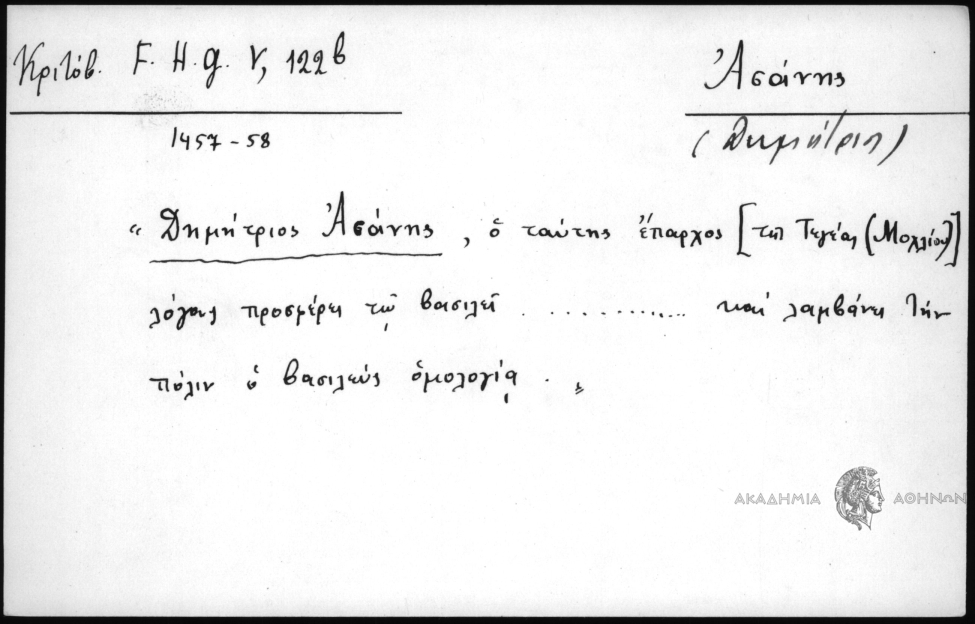 Κριτόβ. F. H. g. V, 122b
Ἀσάνης
1457-58
(Δημήτριος)
“ Δημήτριος Ἀσάνης, ὁ ταύτης ἔπαρχος [τῆς Τεγέας (Μουχλίου)]
λόγους προσφέρει τῷ βασιλεῖ ............ καί λαμβάνει τήν
πόλιν ὁ βασιλεύς ὁμολογίᾳ . „
ΑΚΑΔΗΜΙΑ ΑΘΗΝΩΝ